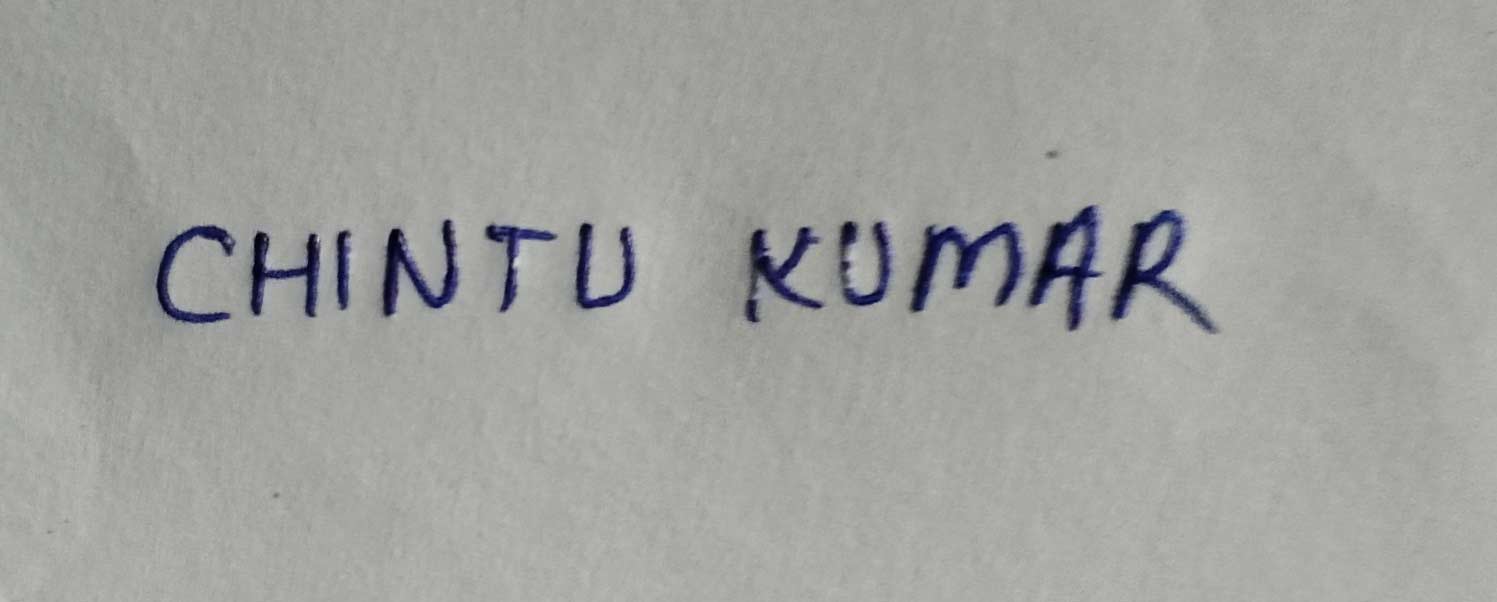 CHINTU KUMAR